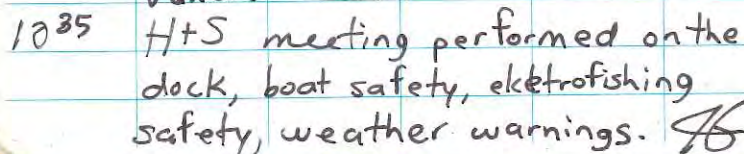 1035 H+S meeting performed on the
dock, boat safety, eketrofishing
safety, weather warnings.